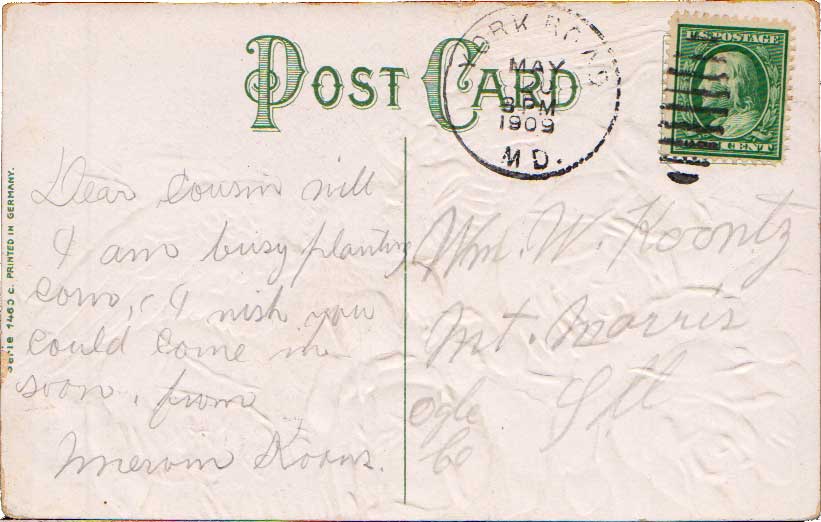 POST CARD
YORK ROAD
MAY
3 PM
1909
MD.
U.S. POSTAGE
CENT
Dear Cousin will
I am busy planting
corn, I wish you
could come in
soon. from
Wm. W. Koontz
Mt. Morris
Ill
Ogle
Co
Serie 1463 C. PRINTED IN GERMANY.